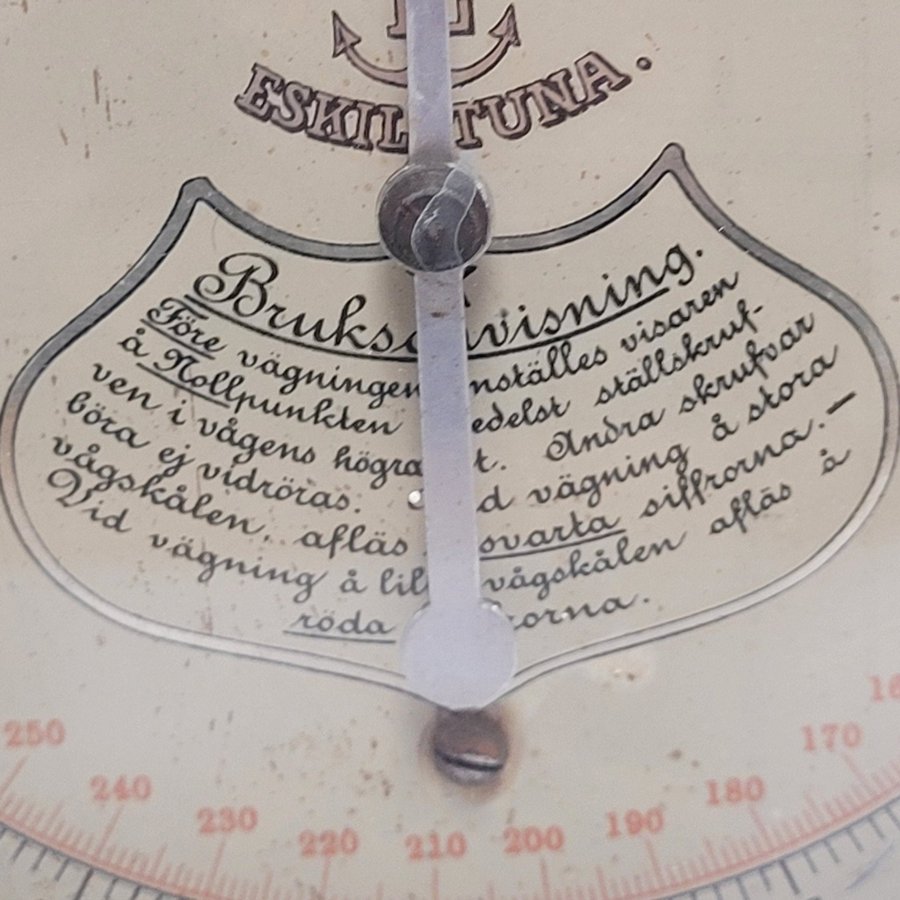 ESKILSTUNA.
Bruksanvisning.
Före vägningen inställes visaren
å Nollpunkten medelst ställskruf-
ven i vågens högra fot. Andra skrufvar
böra ej vidröras. Vid vägning å stora
vågskålen, afläs å svarta siffrorna. —
Vid vägning å lilla vågskålen afläs å
röda siffrorna.
250 240 230 220 210 200 190 180 170